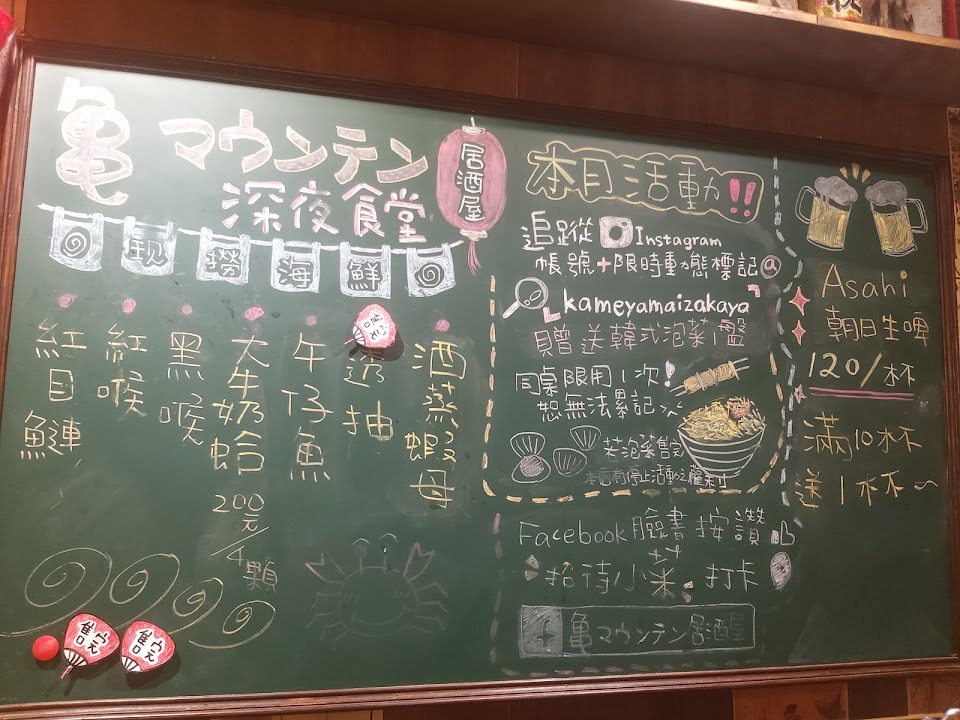 亀マウンテン
深夜食堂
居酒屋
现撈海鮮
紅目鰱
紅喉
黑喉
大牛奶蛤
200元/4顆
午仔魚
透抽
酒蒸蝦母
售完
售完
售完
本日活動!!
追蹤 Instagram
帳號+限時動態標記@
kameyamaizakaya
贈送韓式泡菜1盤
同桌限用1次!
恕無法累記
若泡菜售完
Facebook 臉書按讚
招待小菜 打卡
f 亀マウンテン居酒屋
Asahi
朝日生啤
120/杯
滿10杯
送1杯~